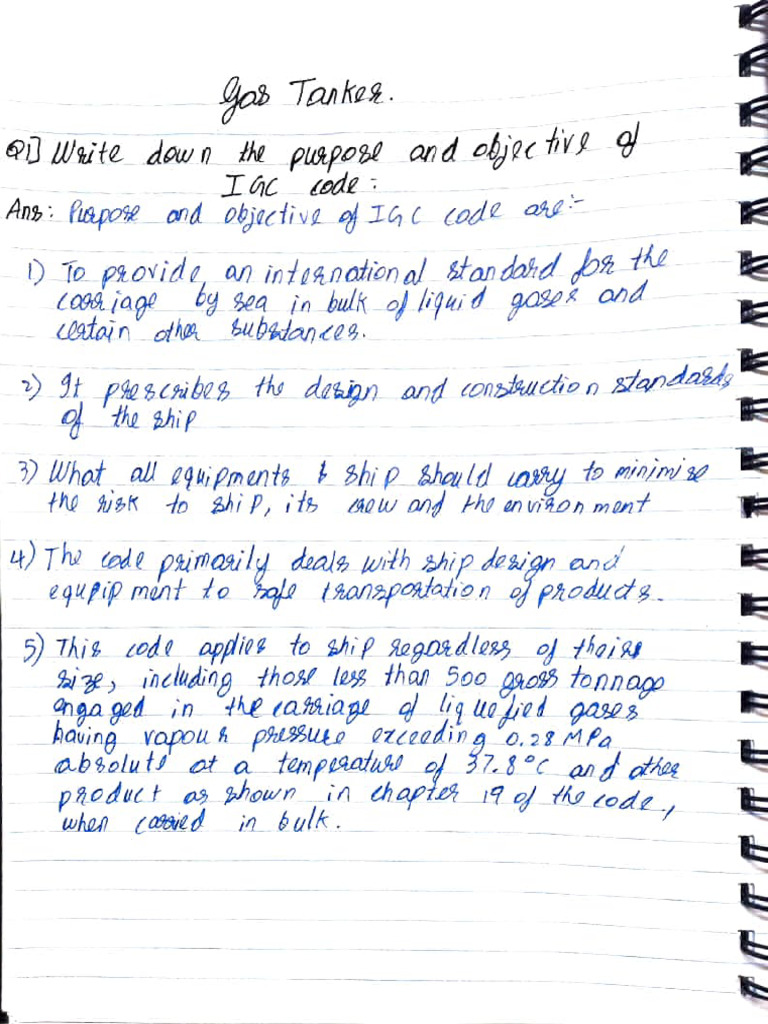 Gas Tanker.
Q1] Write down the purpose and objective of
IGC code:
Ans: Purpose and objective of IGC code are:-
1) To provide an international standard for the
carriage by sea in bulk of liquid gases and
certain other substances.
2) It prescribes the design and construction standards
of the ship
3) What all equipments & ship should carry to minimise
the risk to ship, its crew and the environment
4) The code primarily deals with ship design and
equpipment to safe transportation of products.
5) This code applies to ship regardless of theirs
size, including those less than 500 gross tonnage
engaged in the carriage of liquefied gases
having vapour pressure exceeding 0.28 MPa
absolute at a temperature of 37.8°C and other
product as shown in chapter 19 of the code,
when carried in bulk.